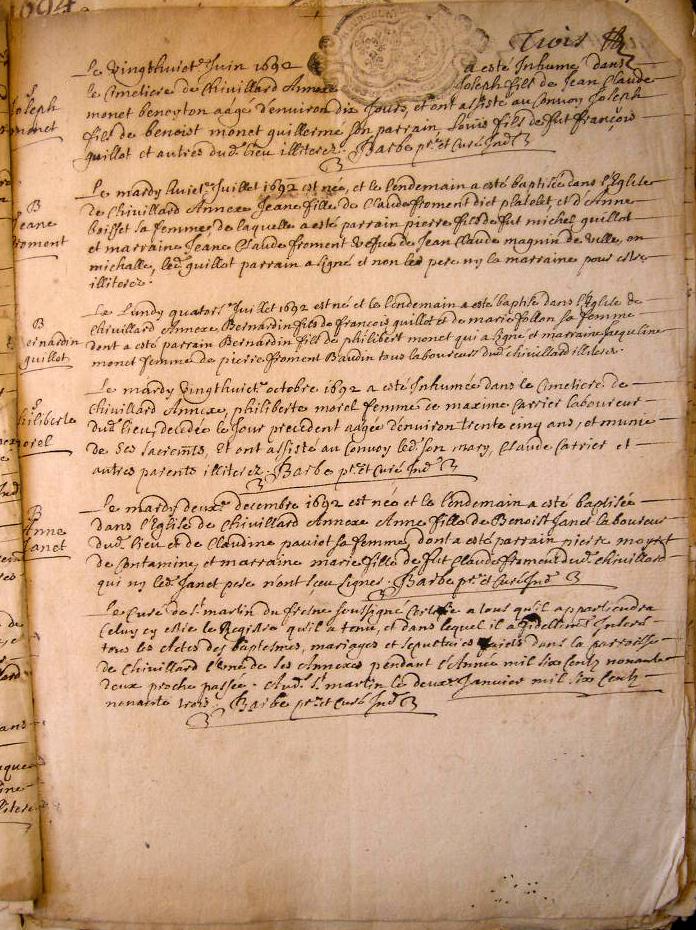 1694
Trois
Le vingthuict.e Juin 1692 a esté Inhumé dans
le Cimetiere de Chivillard Annexe Joseph fils de Jean Claude
monet beneyton aagé d'environ dix Jours, et ont assisté au Convoy Joseph
fils de benoist monet quillerme son parrain, Louis fils de fut françois
guillot et autres dud. lieu illiterez. Barbe pr.e et Curé Ind.
S
Joseph
monet
Le mardy huict.e Juillet 1692 est née, et le lendemain a esté baptisée dans l'Eglise
de Chivillard Annexe Jeane fille de Claude froment dict platelet, et d'Anne
Boisset sa femme de laquelle a esté parrain pierre fils de fut michel guillot
et marraine Jeane Claude froment vefve de Jean Claude magnin de ville, en
michalle, led. guillot parrain a signé et non les pere ny la marraine pour estre
illiterez.
B
Jeane
froment
Le Lundy quators.e Juillet 1692 est né et le lendemain a esté baptisé dans l'Eglise de
Chivillard Annexe Bernardin fils de françois guillot et de marie follon sa femme
dont a esté parrain Bernardin fils de philibert monet qui a signé et marraine Jacqueline
monet femme de pierre froment Baudin tous laboureurs dud. chivillard illiterez.
B
Bernardin
guillot
Le mardy vingthuict.e octobre 1692 a esté Inhumée dans le Cimetiere de
Chivillard Annexe, philiberte morel femme de maxime Carrier laboureur
dud. lieu, decedée le Jour precedent aagée d'environ trente cinq ans, et munie
de ses sacrem.ts, Et ont assisté au Convoy led. son mary, Claude Carrier et
autres parents illiterez. Barbe pr.e et Curé Ind.
S
philiberte
morel
Le mardy deux.e decembre 1692 est née et le lendemain a esté baptisée
dans l'Eglise de Chivillard Annexe Anne fille de Benoist Janet laboureur
dud. lieu et de Claudine paviet sa femme, dont a esté parrain pierre
de Contamine, et marraine marie fille de fut Claude froment dud. chivillard
qui ny led. Janet pere n'ont sceu signer. Barbe pr.e et Curé Ind.
B
Anne
Janet
Le Curé de S.t martin du fresne soussigné Certifie a tous qu'il appartiendra
Celuy cy estre le Registre qu'il a tenu, et dans lequel il a fidellement Inseré
tous les Actes des baptesmes, mariages et sepultures faicts dans la parroisse
de Chivillard l'une de ses Annexes pendant l'Année mil six Centz nonante
deux proche passée. Aud. S.t martin le deux.e Janvier mil six Centz
nonante trois. Barbe pr.e et Curé Ind.